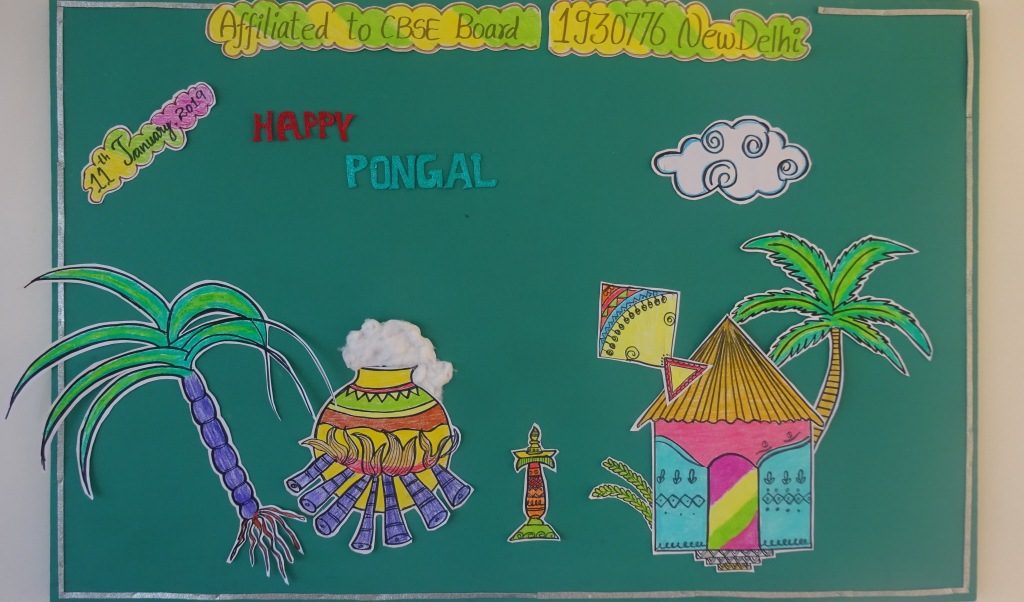 Affiliated to CBSE Board 1930776 New Delhi
11th January, 2019
HAPPY
PONGAL